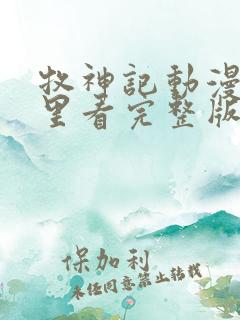 牧神記動漫
里看完整版
保加利
未经同意禁止转载